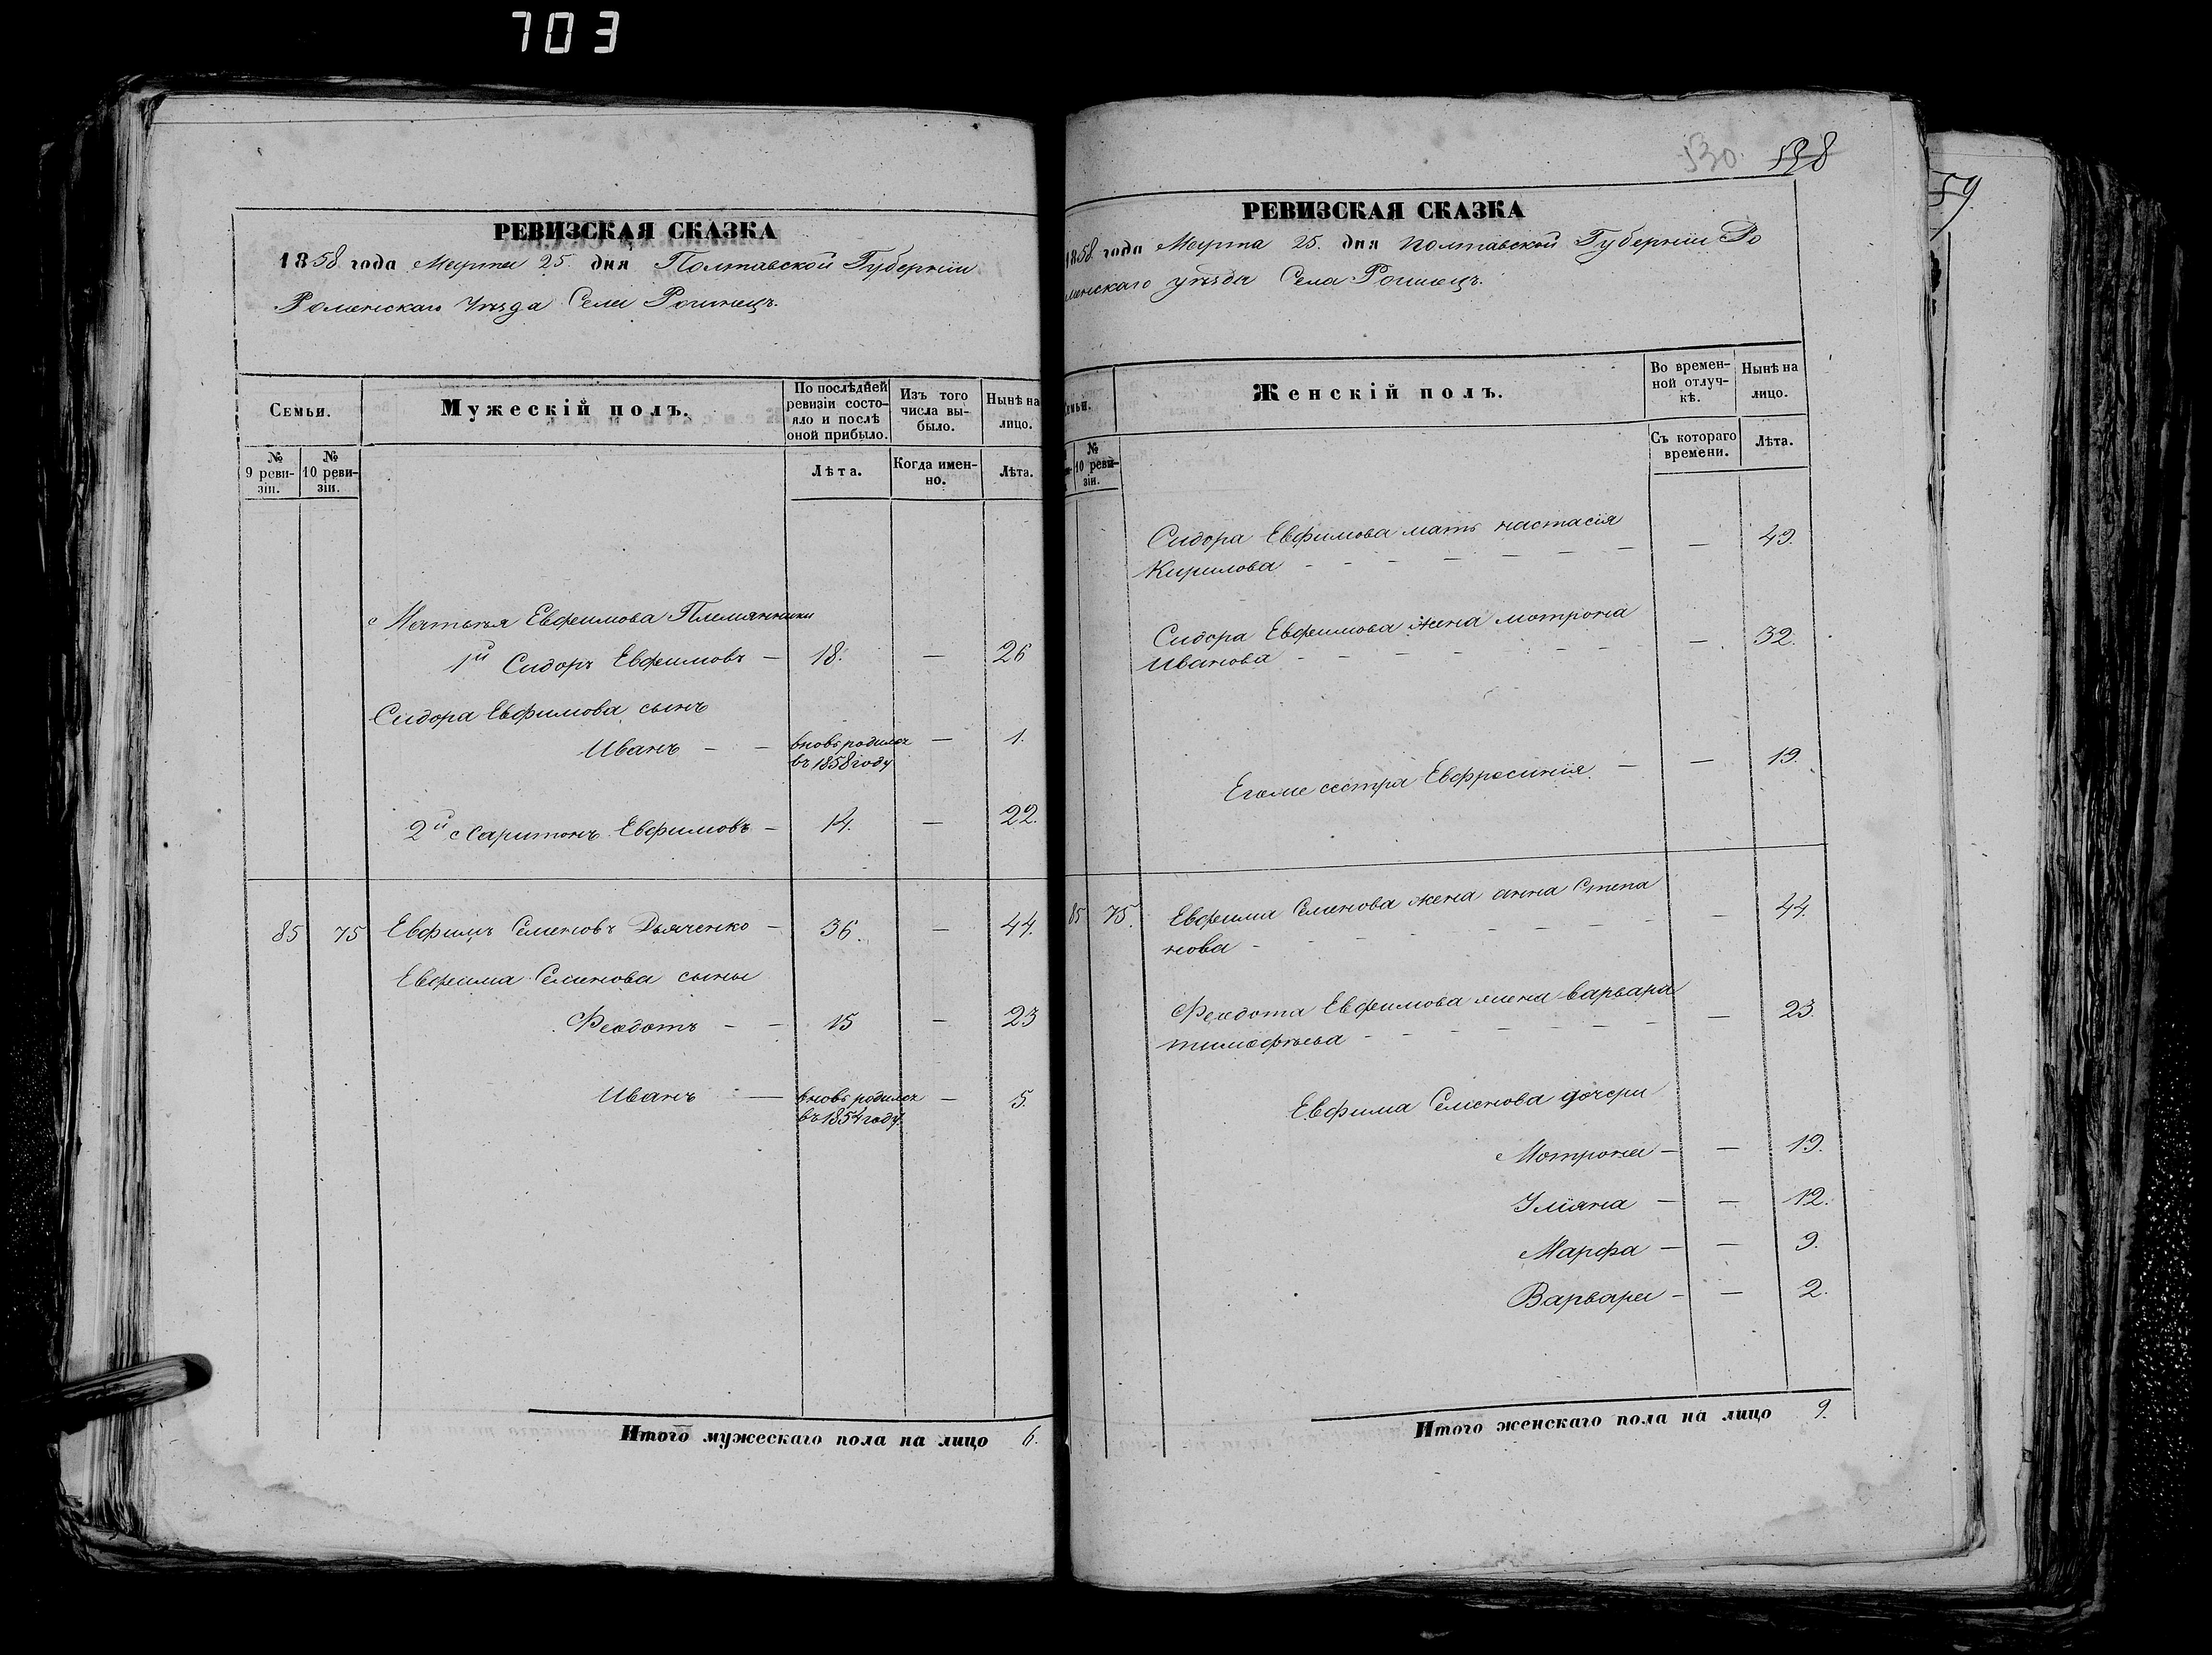 703
РЕВИЗСКАЯ СКАЗКА
1858 года Марта 25. дня Полтавской Губерніи
Роменскаго Уѣзда Села Рогинецъ.
Семьи.
Мужескій полъ.
По послѣдней ревизіи состояло и послѣ оной прибыло.
Изъ того числа выбыло.
Нынѣ на лицо.
№ 9 ревизіи.
№ 10 ревизіи.
Лѣта.
Когда именно.
Лѣта.
Евфимова Племянники
1й Сидоръ Евфимовъ — 18. — 26
Сидора Евфимова сынъ
Иванъ — — вновь родился — 1.
въ 1858 году
2й Харитонъ Евфимовъ — 14. — 22.
85 75 Евфимъ Семеновъ Дьяченко — 36. — 44.
Евфима Семенова сыны
Феодотъ — — 15 — 23
Иванъ — вновь родился — 5.
въ 1854 году.
Итого мужескаго пола на лицо 6.
530. 538
РЕВИЗСКАЯ СКАЗКА
1858 года Марта 25. дня Полтавской Губерніи Ро
менскаго уѣзда Села Рогинецъ.
Женскій полъ.
Во временной отлучкѣ.
Нынѣ на лицо.
№ 10 ревизіи.
Съ котораго времени.
Лѣта.
Сидора Евфимова мать настасія
Кирилова — — — — — — — 49.
Сидора Евфимова жена мотрона
Иванова — — — — — — — 32.
Егоже сестра Евфросинія — — 19.
85 75. Евфима Семенова жена анна Степа
нова — — — — — — — 44.
Феодота Евфимова жена варвара
тимофѣева — — — — — — — 23.
Евфима Семенова дочери
Мотрона — — 19.
Уліяна — — 12.
Марфа — — 9.
Варвара — — 2.
Итого женскаго пола на лицо 9.
59